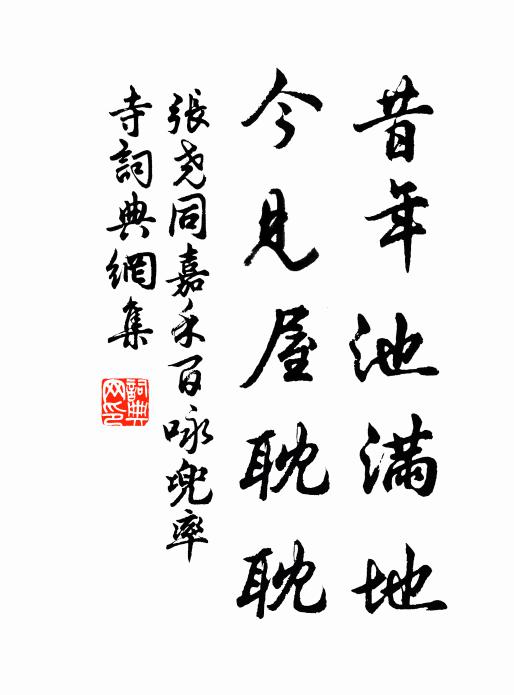 昔年池滿地
今見屋耽耽
張堯同嘉禾百咏兜率
寺詞典網集
詞典網印